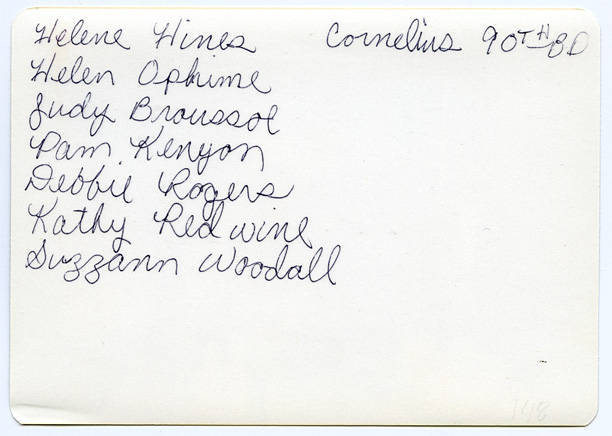 Helene Hines Cornelius 90TH BD
Helen Ophime
Judy Broussoe
Pam Kenyon
Debbie Rogers
Kathy Redwine
Suzzann Woodall
148